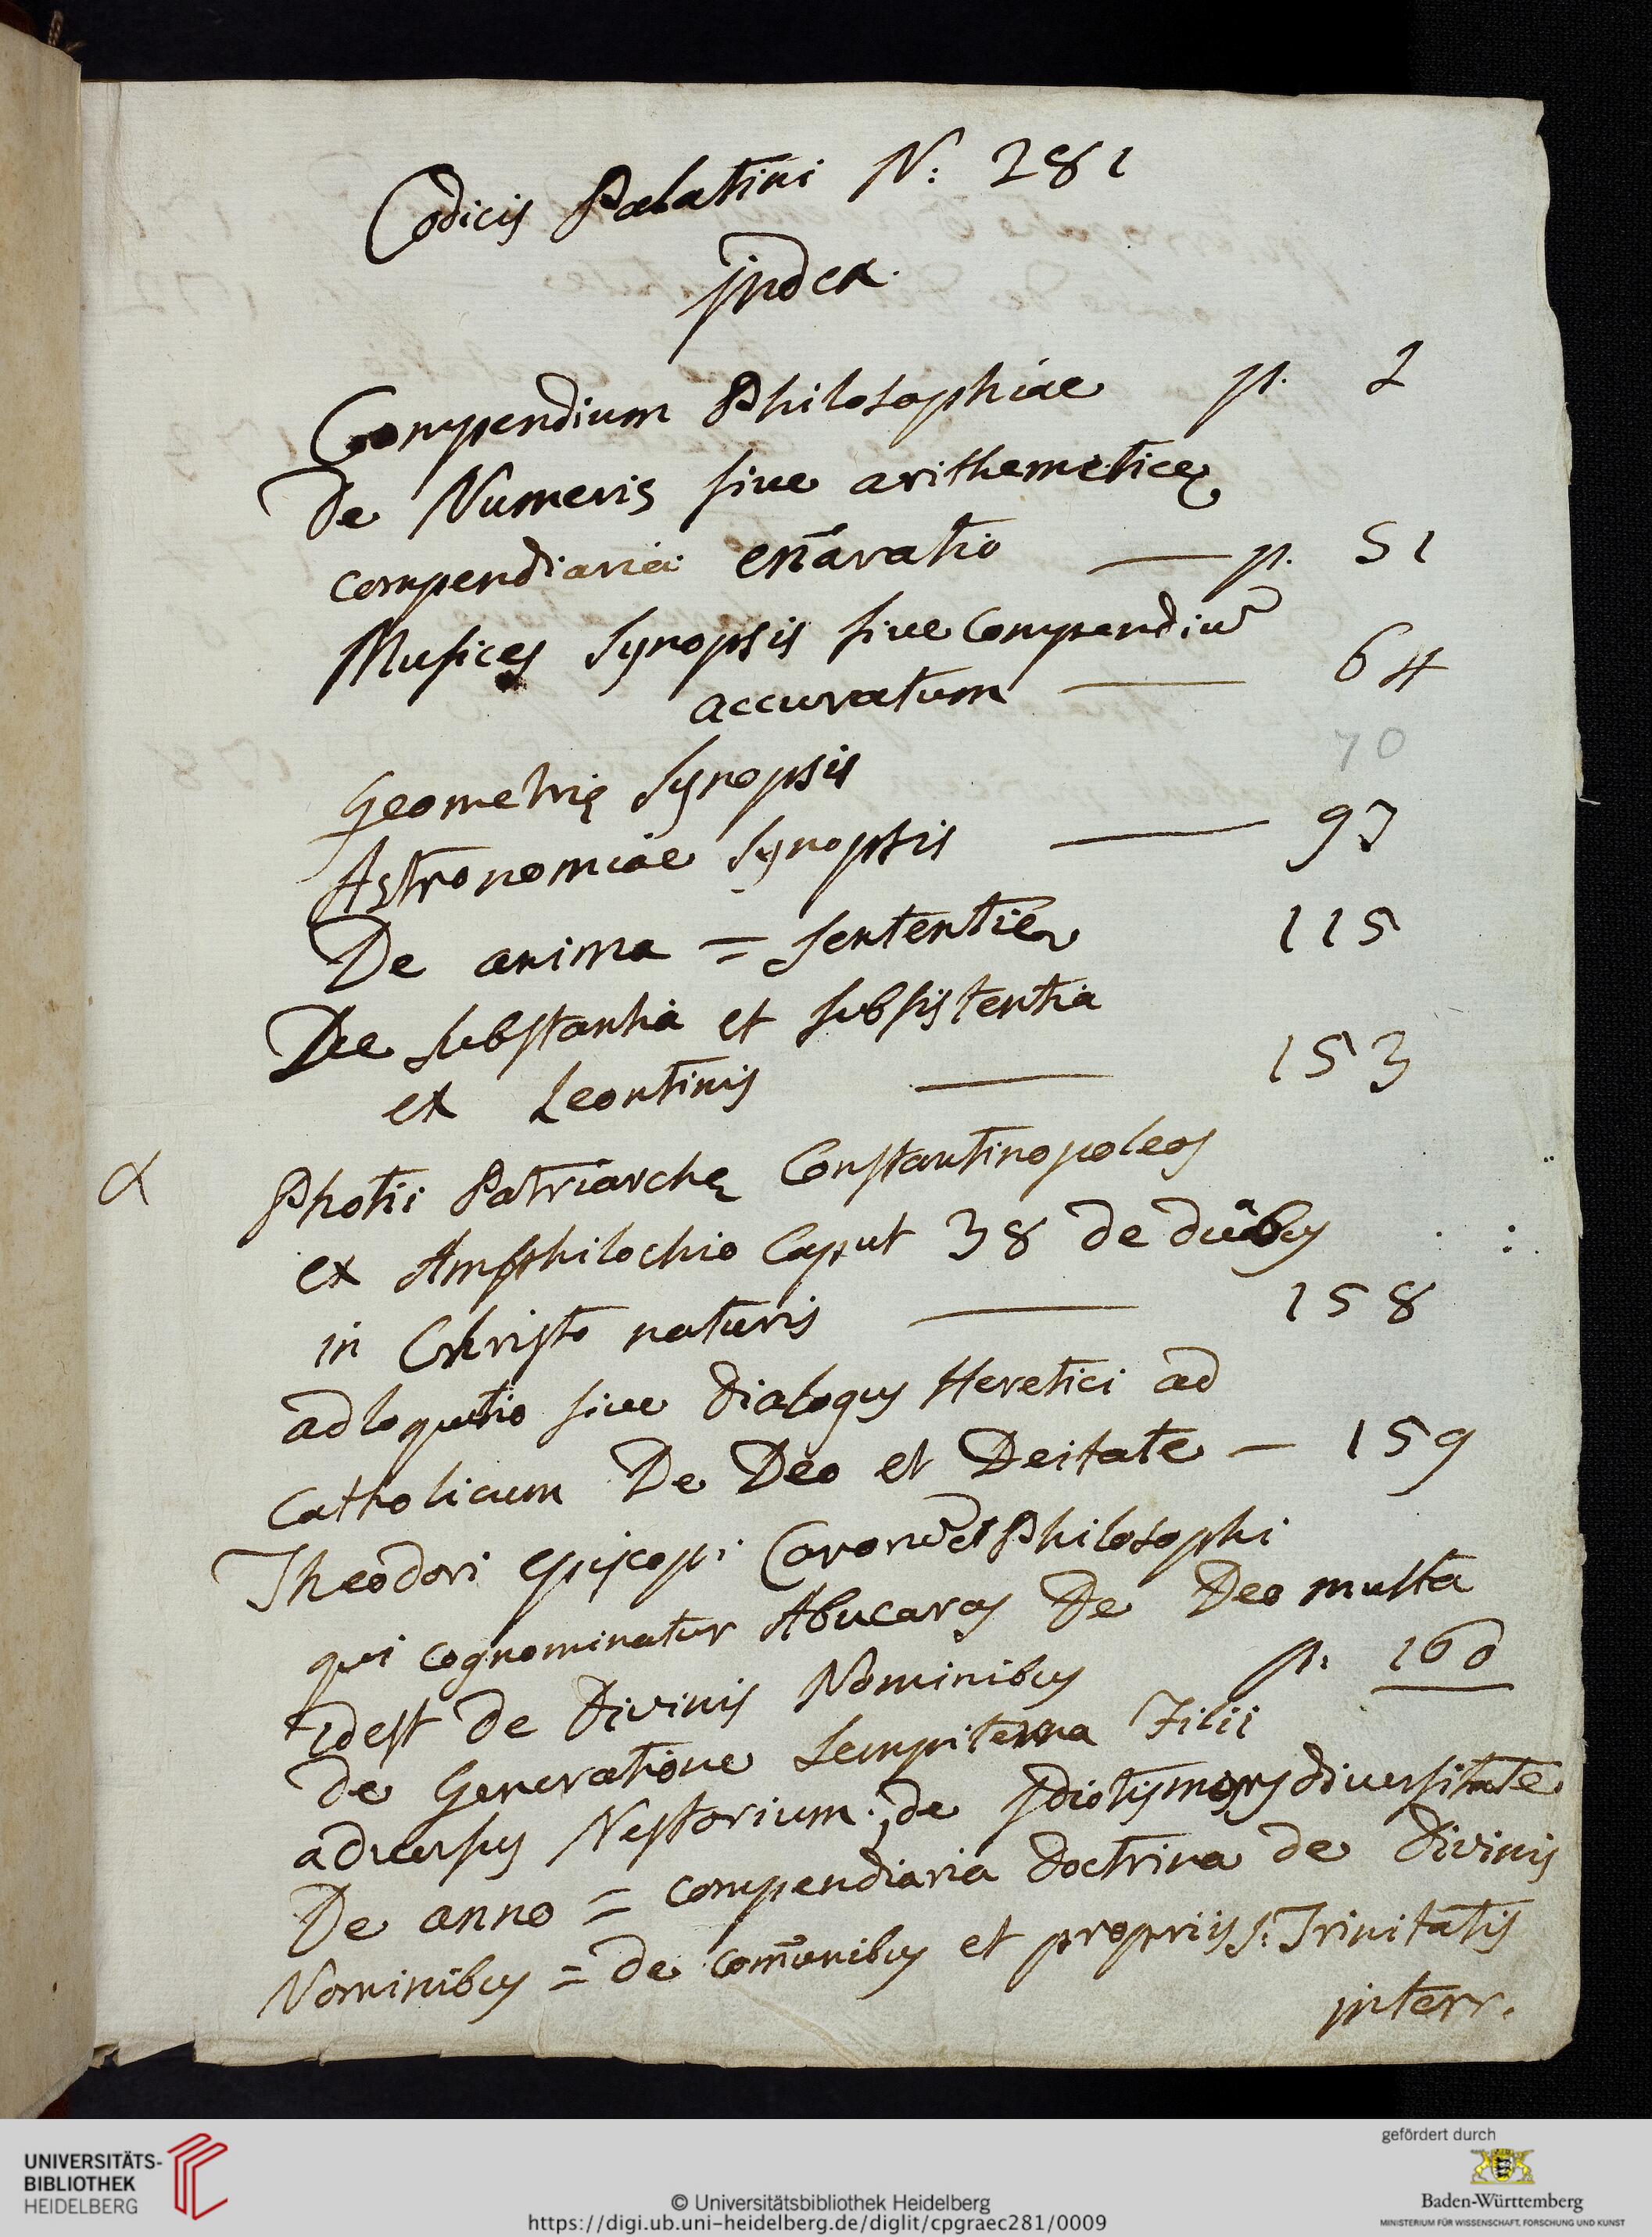 Codicis Palatini N: 281
Index.
Compendium Philosophiae p. 2
De Numeris sive arithemeticę
compendiaria en̄aratio — p. 51
Musices Synopsis sive Compendiu͂
accuratum — 64
70
Geometrię Synopsis
Astronomiae Synopsis — 93
De anima = sententiae 115
De substantia et subsistentia
ex Leontinis — 153
α Photii Patriarchę Constantinopoleos
ex Amphilochio Caput 38 de duabus
in Christo naturis — 158
adloqutio sive dialogus Heretici ad
Catholicum De Deo et Deitate — 159
Theodori episcopi Caronu͂ et Philosophi
qui cognominatur Abucaras De Deo multa
idest de Divinis Nominibus p. 160
de Generatione sempiterna Filii
adversus Nestorium; de diversitate
De anno = compendiaria doctrina de Divinis
Nominibus = de com̄unibus et propriis S. Trinitatis
interr.
UNIVERSITÄTS-
BIBLIOTHEK
HEIDELBERG
© Universitätsbibliothek Heidelberg
https://digi.ub.uni-heidelberg.de/diglit/cpgraec281/0009
gefördert durch
Baden-Württemberg
MINISTERIUM FÜR WISSENSCHAFT, FORSCHUNG UND KUNST